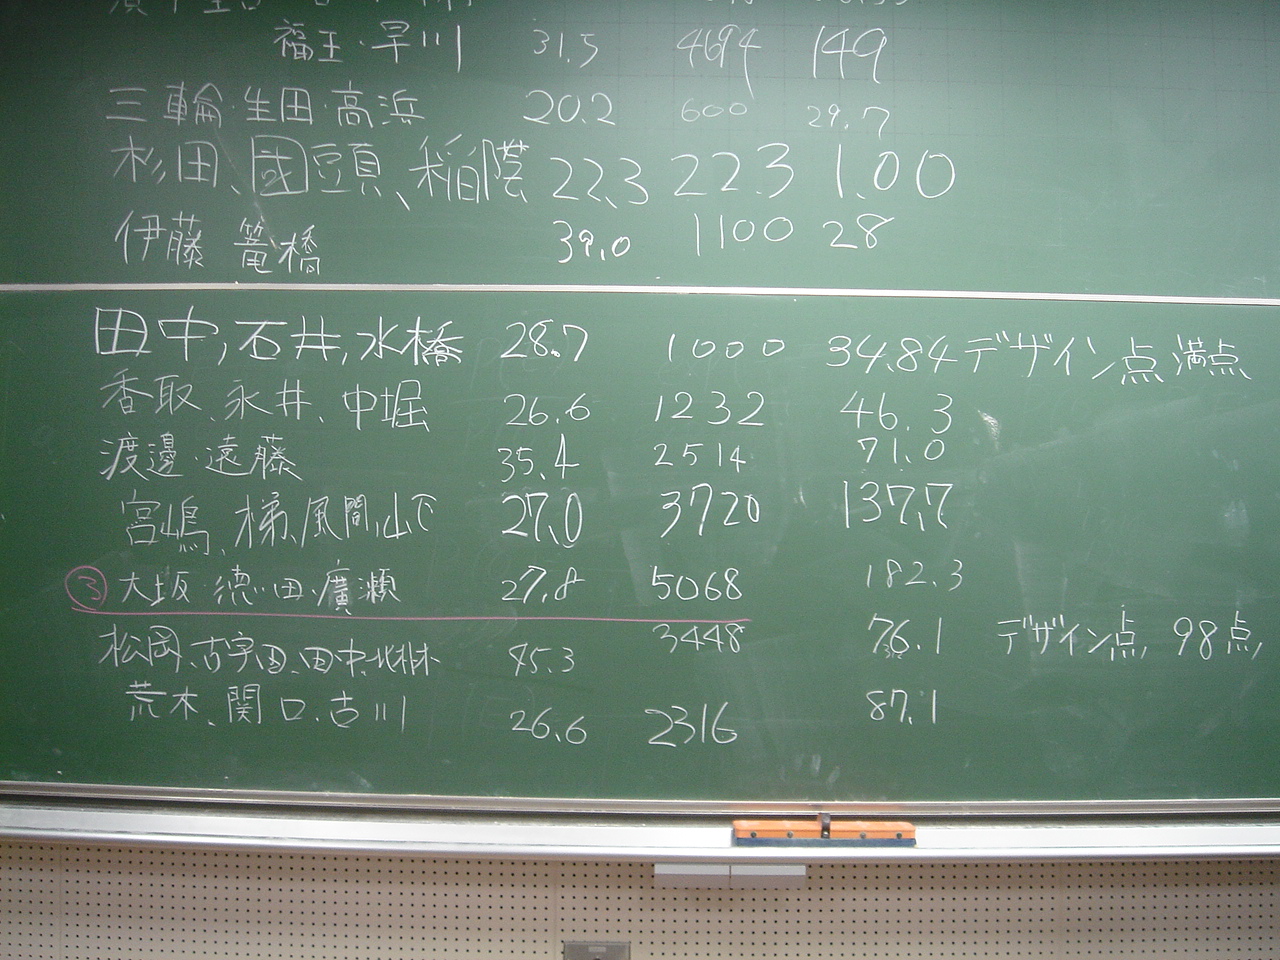 福王・早川 31.5 4694 149
三輪・生田・高浜 20.2 600 29.7
杉田、國頭、稲蔭 22.3 22.3 1.00
伊藤 篭橋 39.0 1100 28
田中,石井,水橋 28.7 1000 34.84 デザイン点 満点
香取、永井、中堀 26.6 1232 46.3
渡邊・遠藤 35.4 2514 71.0
宮嶋、梯、風間、山下 27.0 3720 137.7
③ 大坂・徳田・廣瀬 27.8 5068 182.3
松岡、古宇田、田中、北林 45.3 3448 76.1 デザイン点, 98点,
荒木、関口、古川 26.6 2316 87.1